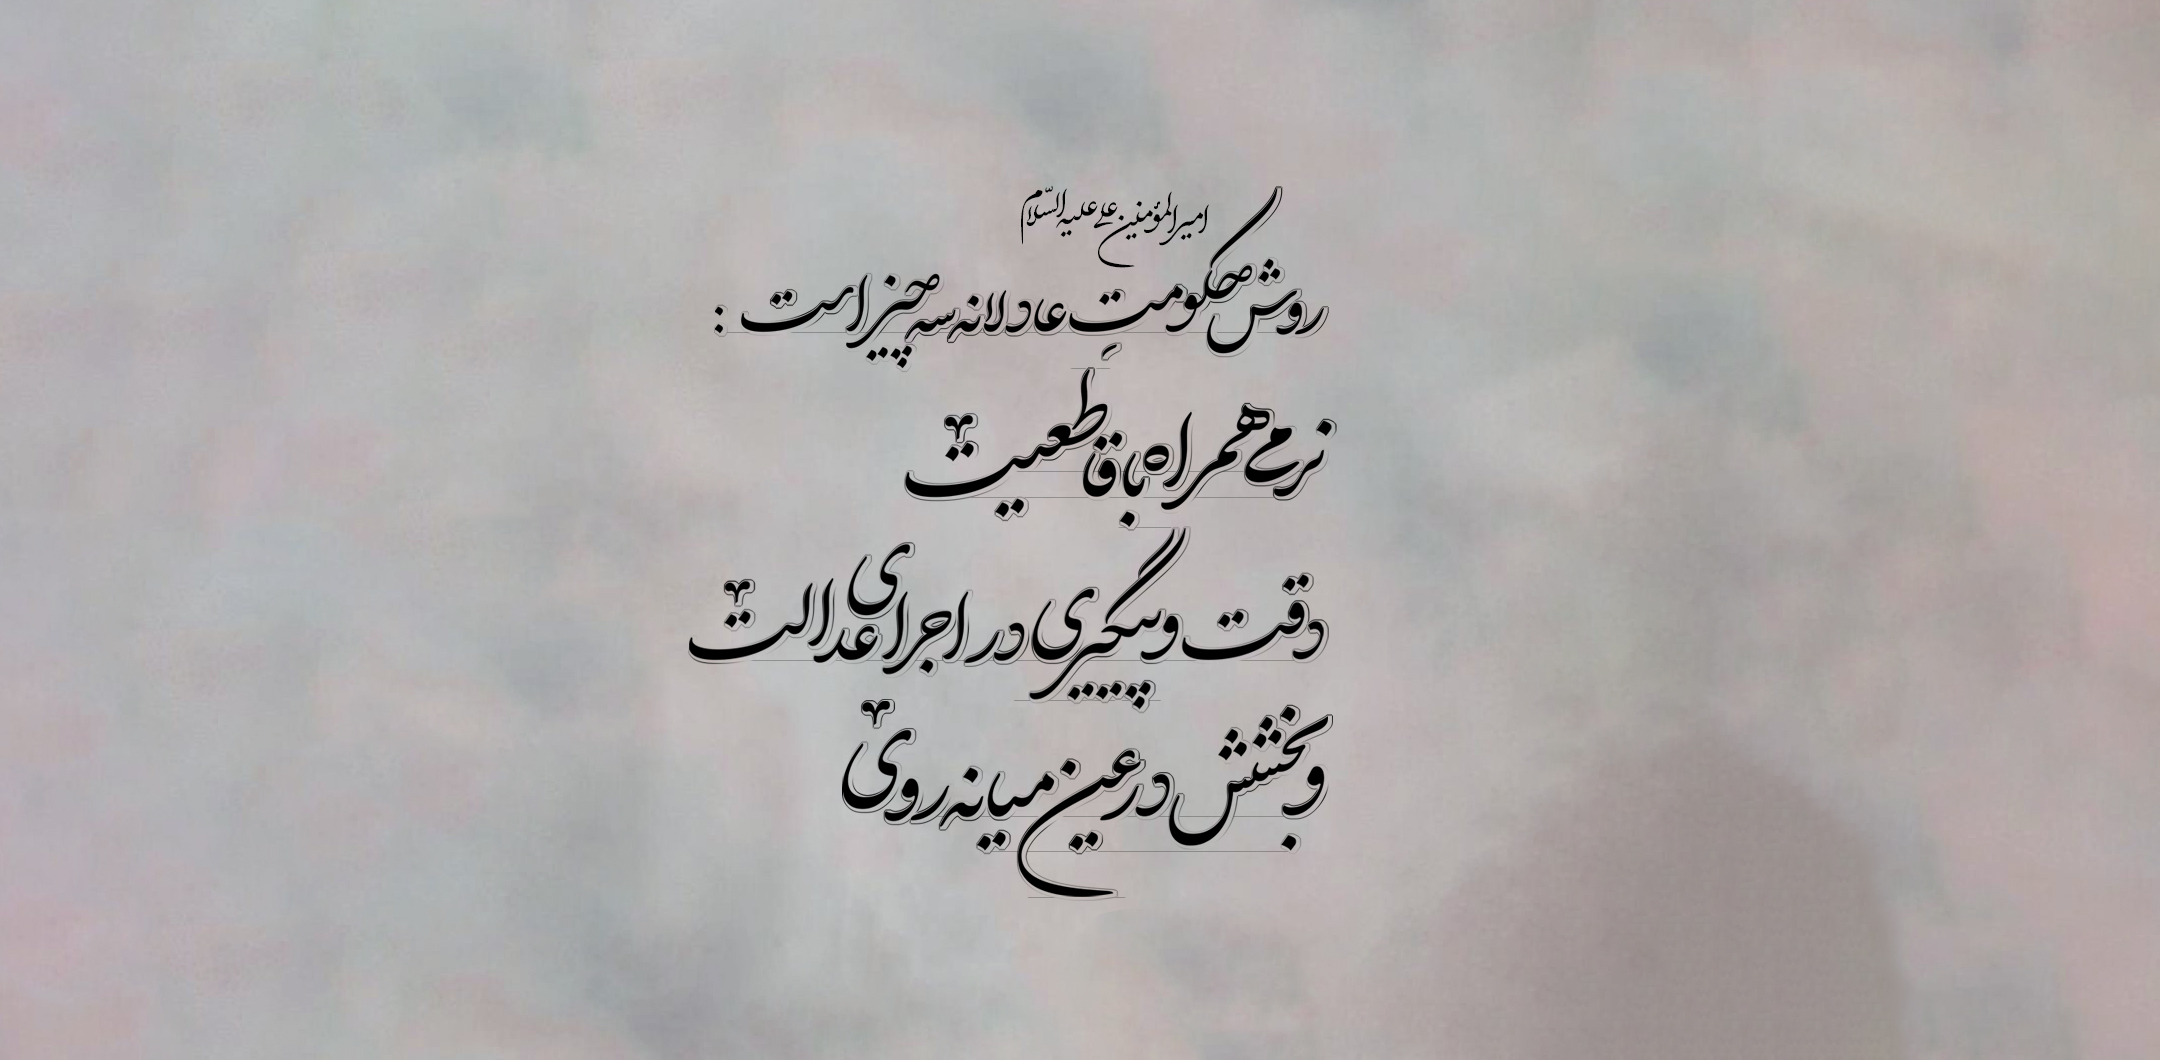 امیرالمؤمنین علی علیه السّلام
روش حکومتِ عادلانه سه چیز است :
نرمی همراه با قاطعیت
دقت و پیگیری در اجرای عدالت
و بخشش در عین میانه روی